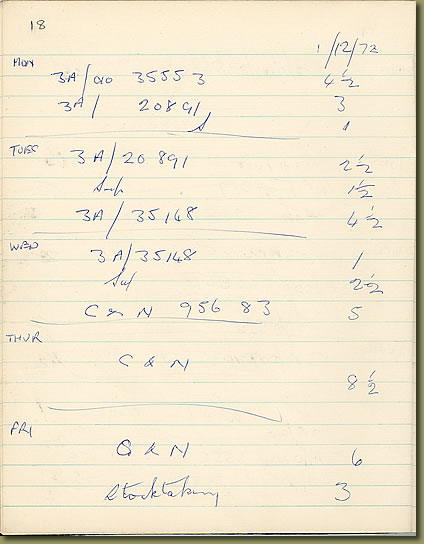 18
1/12/72
MON
3A/ 35553 4½
3A/ 20891 3
S 1
TUES
3A/20891 2½
Sup 1½
3A/35148 4½
WED
3A/35148 1
Sup 2½
C & N 956 83 5
THUR
C & N
8½
FRI
C & N 6
Stocktaking 3